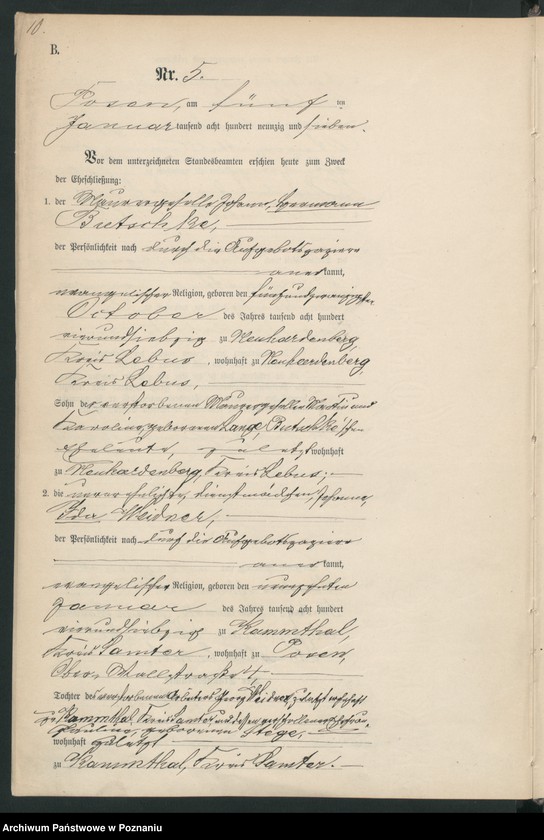 10.
B.
Nr. 5.
Posen, am fünf ten
Januar tausend acht hundert neunzig und sieben.
Vor dem unterzeichneten Standesbeamten erschien heute zum Zweck
der Eheschließung:
1. der Maurergeselle Johann, Hermann
Butschke,
der Persönlichkeit nach durch die Aufgebotspapiere
anerkannt,
evangelischer Religion, geboren den fünfundzwanzigsten
October des Jahres tausend acht hundert
vierundsiebzig zu Neuhardenberg,
Kreis Lebus, wohnhaft zu Neuhardenberg,
Kreis Lebus,
Sohn des verstorbenen Maurergesellen Martin und
Karoline, geborenen Lange, Butschke'schen
Eheleute, zuletzt wohnhaft
zu Neuhardenberg, Kreis Lebus;
2. die unverehelichte, Dienstmädchen, Johanna,
Ida Weidner,
der Persönlichkeit nach durch die Aufgebotspapiere
anerkannt,
evangelischer Religion, geboren den neunzehnten
Januar des Jahres tausend acht hundert
vierundsiebzig zu Kammthal,
Kreis Samter, wohnhaft zu Posen,
Ober Wallstraße 4,
Tochter des verstorbenen Arbeiters Georg Weidner zuletzt wohnhaft
zu Kammthal Kreis Samter und dessen verschollener Ehefrau
Pauline, geborenen Stege,
wohnhaft zuletzt
zu Kammthal, Kreis Samter.
Archiwum Państwowe w Poznaniu
szukajwarchiwach.gov.pl